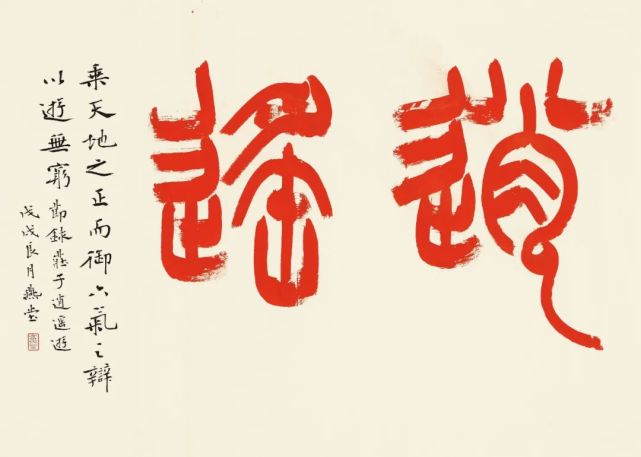 逍遙
乘天地之正而御六氣之辯
以遊無窮 節錄莊子逍遙遊
戊戌良月燕堂